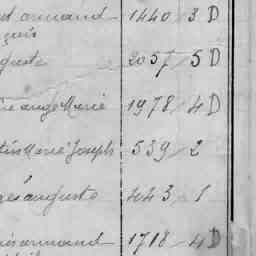 armand 1440 / 3 D
guste 2057 / 5 D
ange Marie 1978 / 4 D
Marie Joseph 539 / 2
auguste 443 / 1
armand 1718 / 4 D